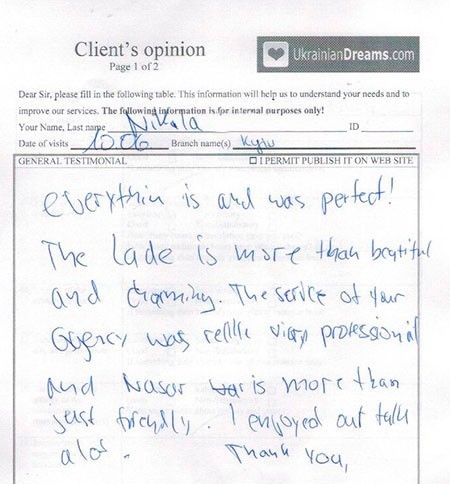 Client's opinion
UkrainianDreams.com
Page 1 of 2
Dear Sir, please fill in the following table. This information will help us to understand your needs and to
improve our services. The following information is for internal purposes only!
Your Name, Last name Nikola ID
Date of visits 10.06 Branch name(s) Kyiv
GENERAL TESTIMONIAL ☐ I PERMIT PUBLISH IT ON WEB SITE
everythin is and was perfect!
The Lade is more than beatiful
and charming. The service of your
agency was vicery professional
and Nasar is more than
just friendly. I enjoyed out talk
alot.
Thank you,